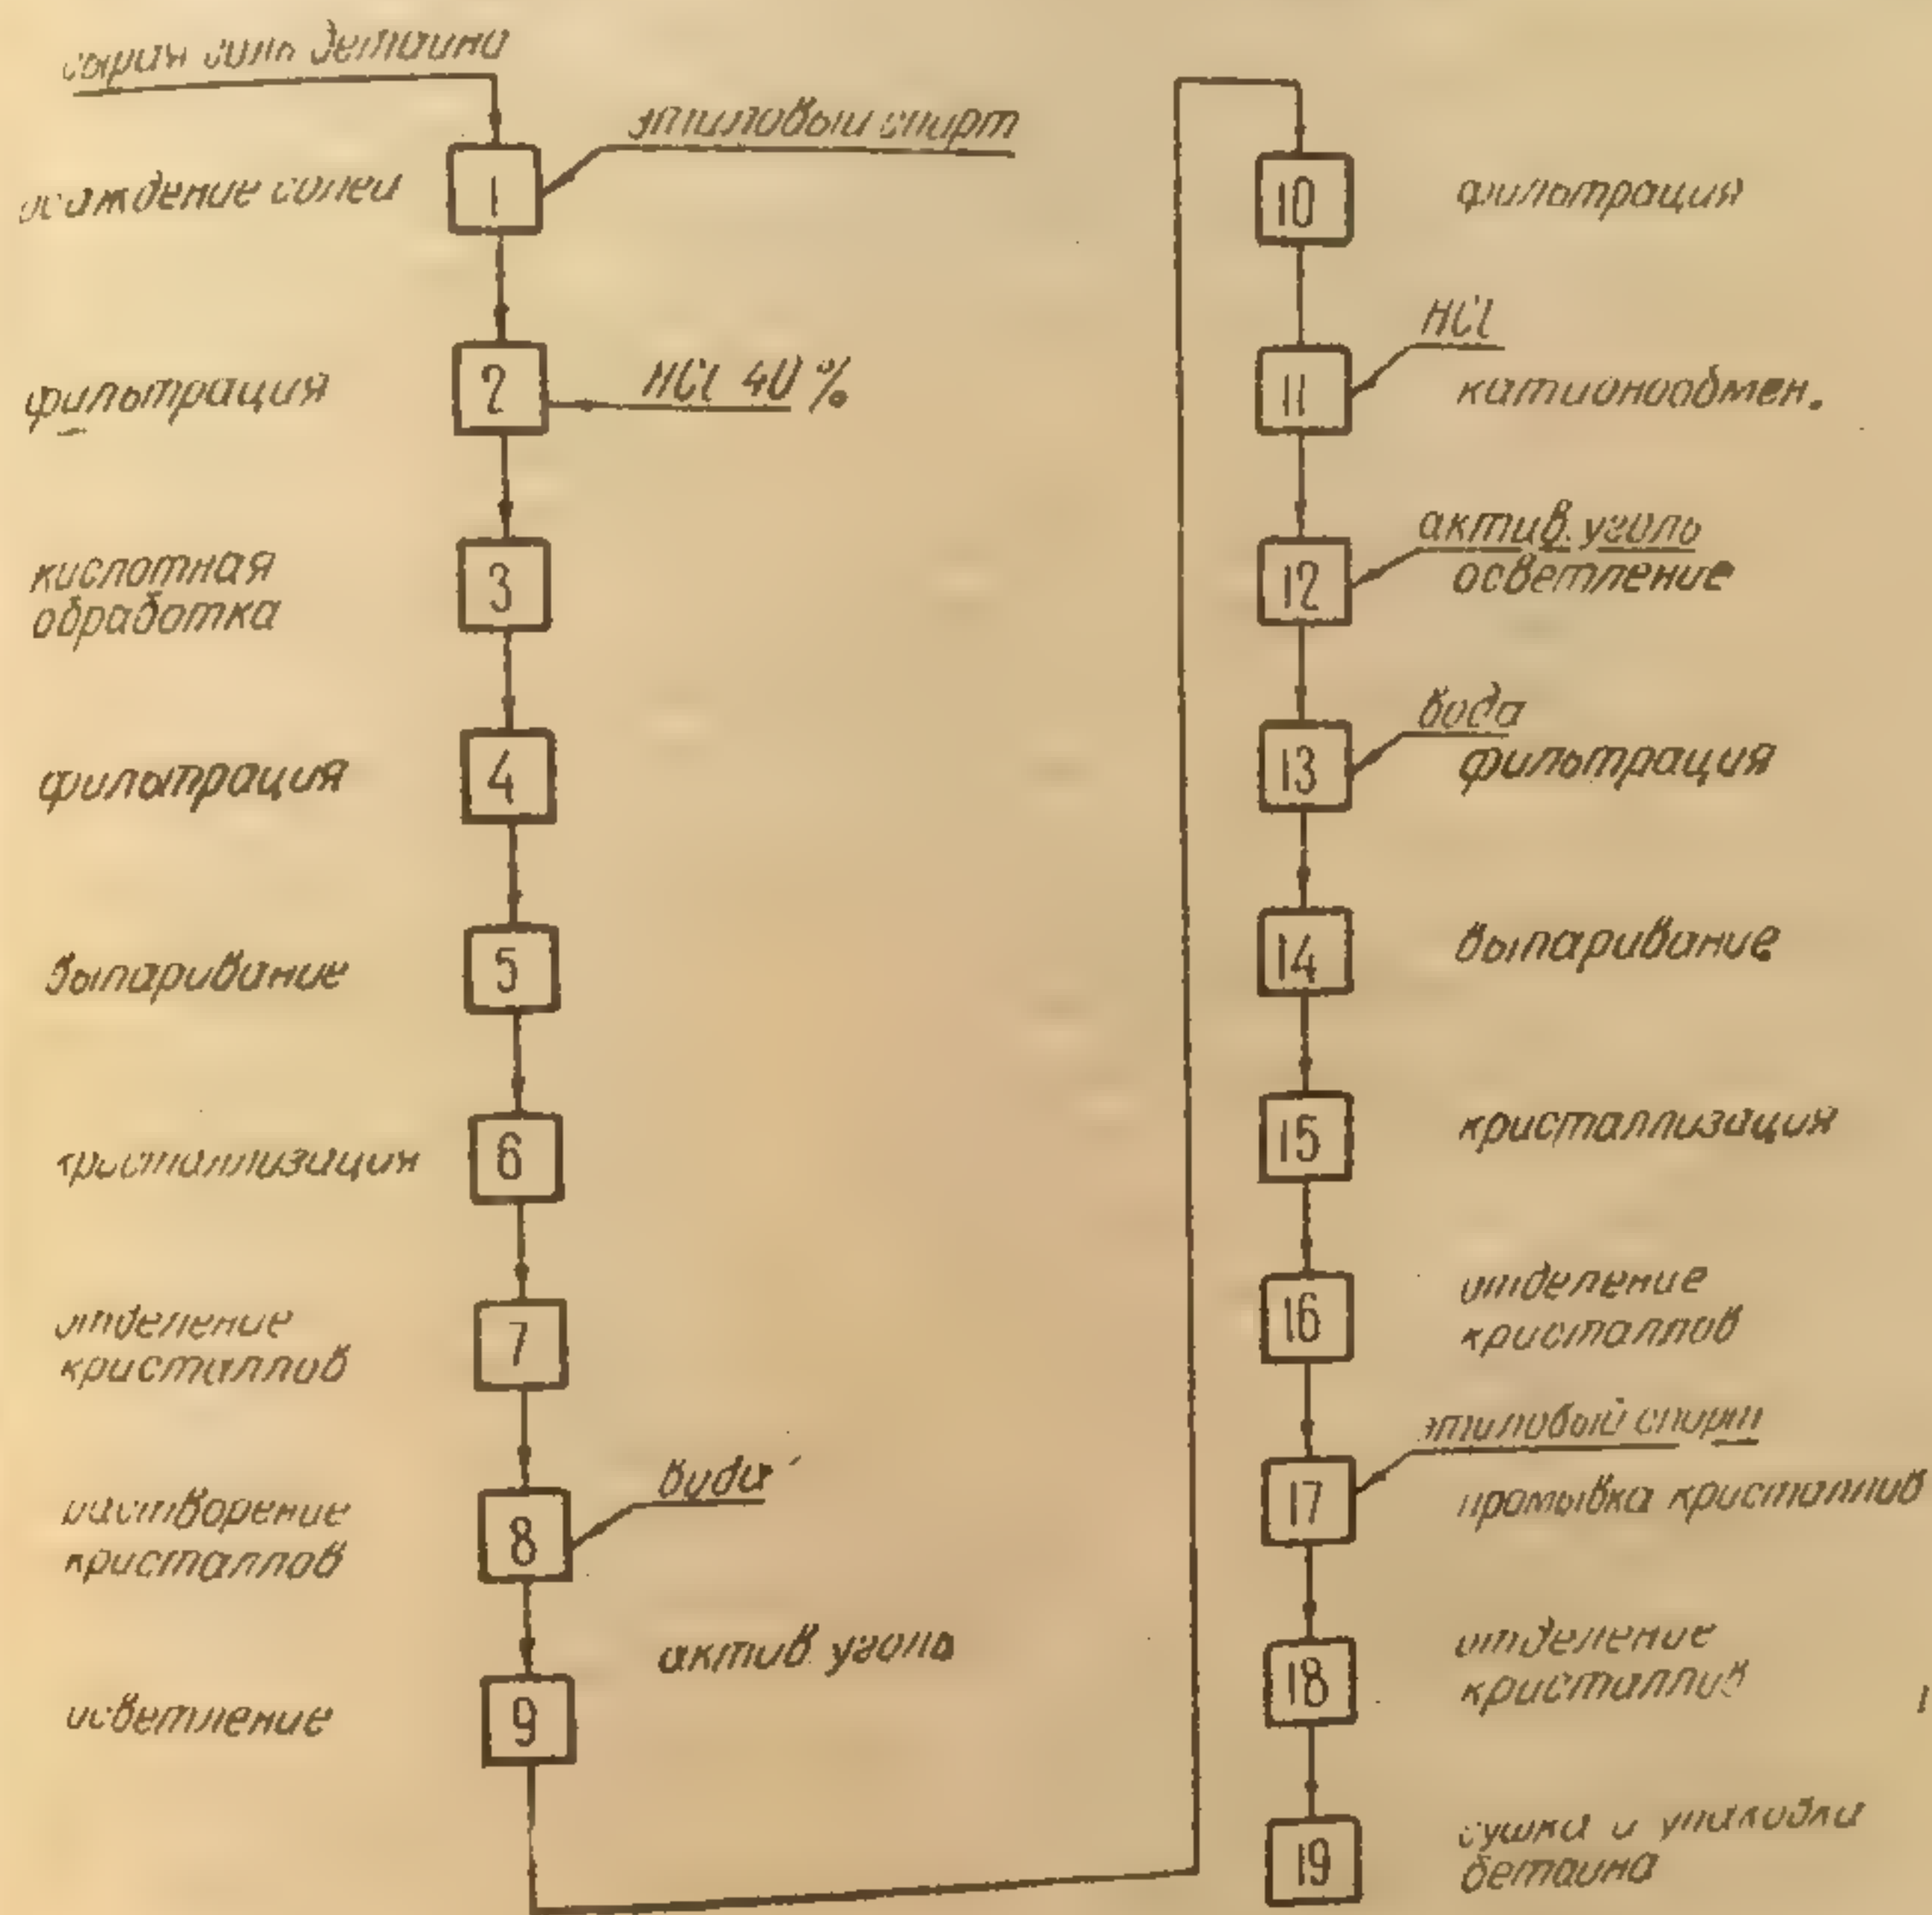 сырая соль бетаина
этиловый спирт
осаждение солей
1
фильтрация
2
HCl 40%
кислотная
обработка
3
фильтрация
4
выпаривание
5
кристаллизация
6
отделение
кристаллов
7
растворение
кристаллов
8
вода
актив уголь
осветление
9
10
фильтрация
HCl
11
катионообмен.
актив. уголь
12
осветление
вода
13
фильтрация
14
выпаривание
15
кристаллизация
16
отделение
кристаллов
этиловый спирт
17
промывка кристаллов
18
отделение
кристаллов
19
сушка и упаковка
бетаина